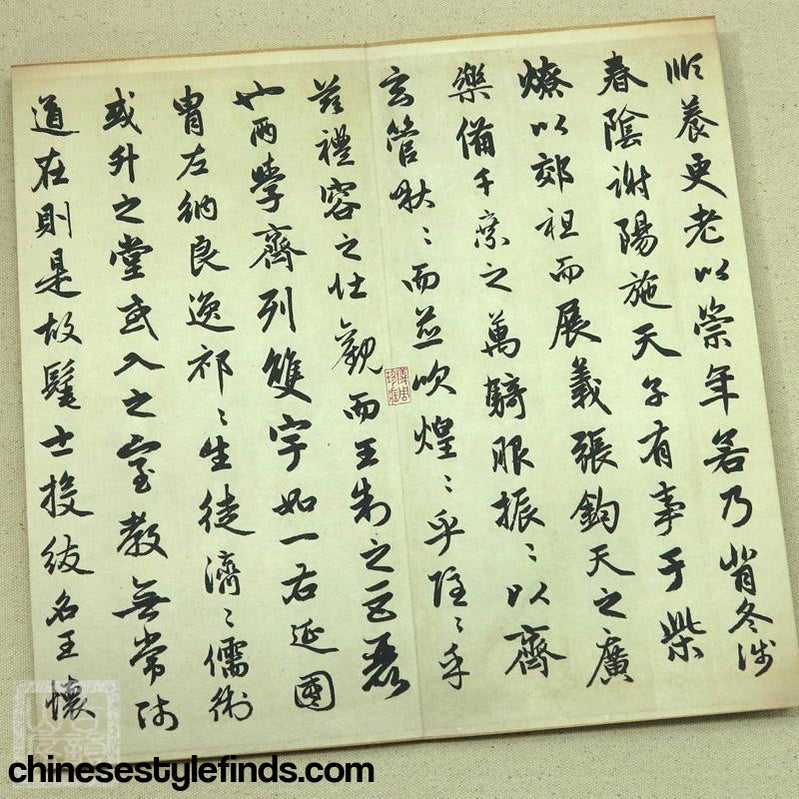 順養更老以崇年若乃背冬涉
春陰謝陽施天子有事于柴
燎以郊祖而展義張鈞天之廣
樂備千乘之萬騎服振〻以齊
玄管啾〻而並吹煌〻乎隱〻乎
茲禮容之壯觀而王制之巨麗
也兩學齊列雙宇如一右延國
胄左納良逸祁〻生徒濟〻儒術
或升之堂或入之室教無常師
道在則是故髦士投紱名王懷
chinesestylefinds.com